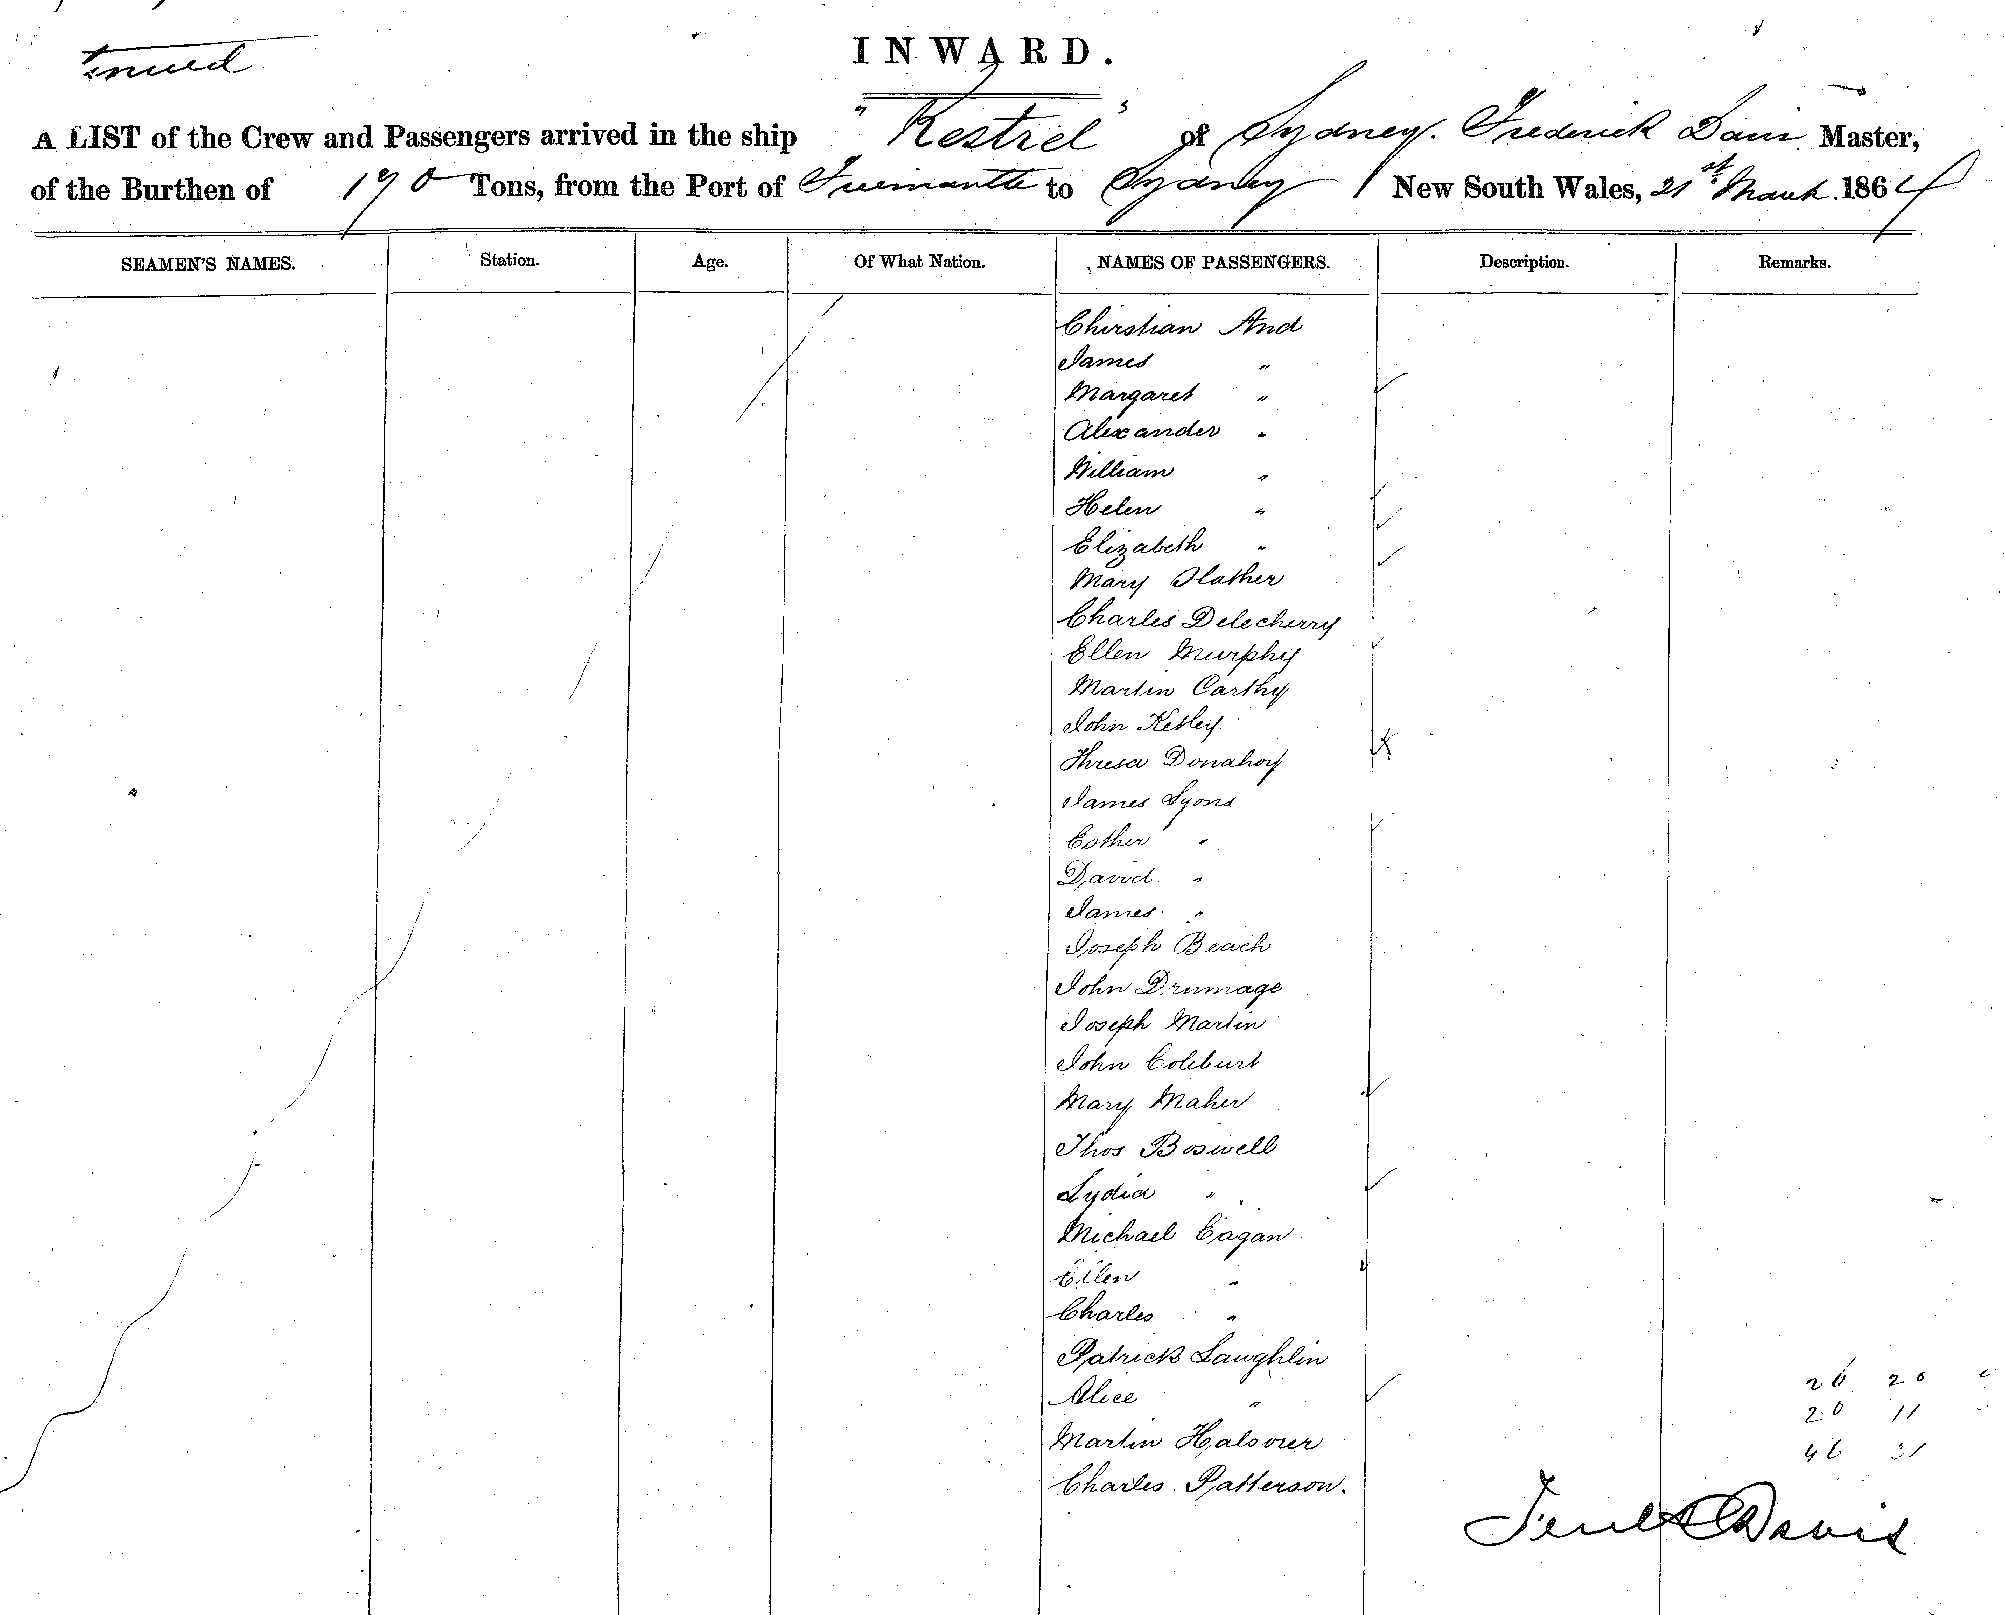 INWARD.
A LIST of the Crew and Passengers arrived in the ship "Kestrel" of Sydney. Frederick Davis Master,
of the Burthen of 190 Tons, from the Port of Fremantle to Sydney / New South Wales, 21st March 1864
SEAMEN'S NAMES. Station. Age. Of What Nation. NAMES OF PASSENGERS. Description. Remarks.
Chirstian And
James "
Margaret "
Alexander "
William "
Helen "
Elizabeth "
Mary Slather
Charles Delecherry
Ellen Murphy
Martin Carthy
John Ketley
Thresa Donahoy
James Lyons
Esther "
David "
James "
Joseph Beach
John Drumage
Joseph Martin
John Coleburt
Mary Maher
Thos Boswell
Lydia "
Michael Eagan
Ellen "
Charles "
Patrick Laughlin
Alice "
Martin Halsover
Charles Patterson.
26 20
20 11
46 31
Davis